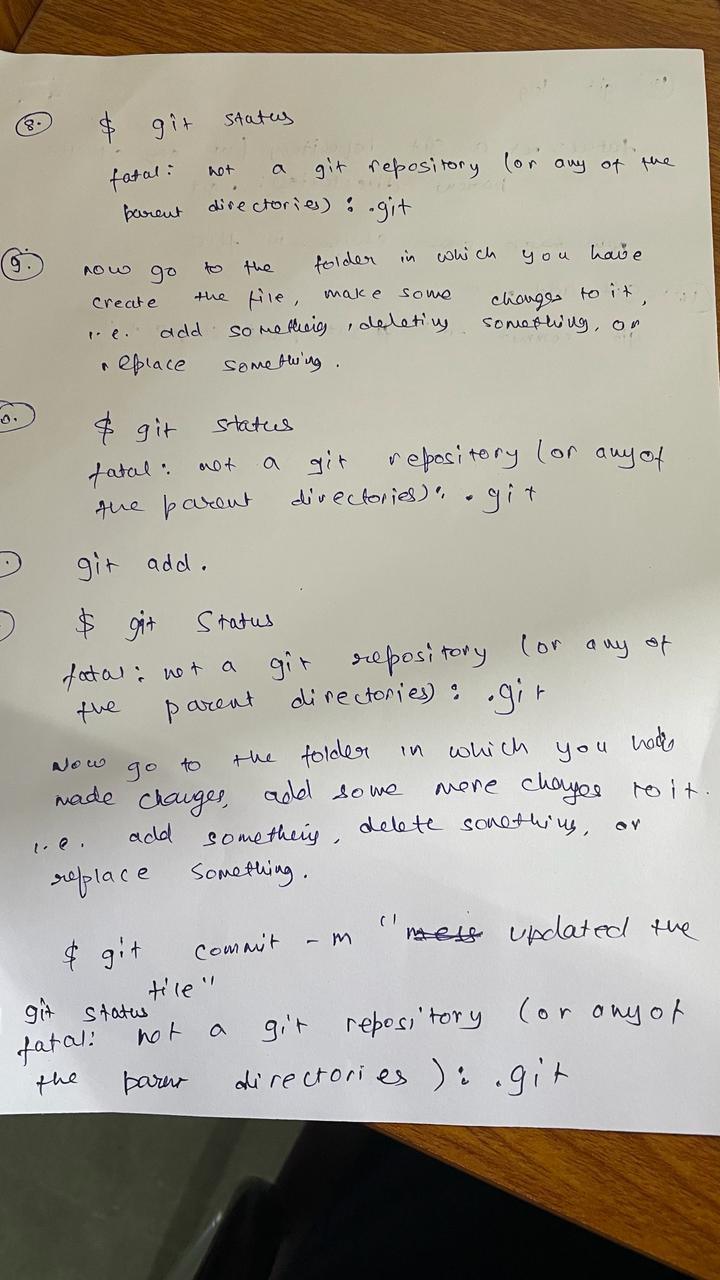 8. $ git status
fatal: not a git repository (or any of the
parent directories) : .git
9. now go to the folder in which you have
create the file, make some changes to it,
i.e. add something, deleting something, or
replace something.
$ git status
fatal: not a git repository (or any of
the parent directories): .git
git add.
$ git Status
fatal: not a git repository (or any of
the parent directories) : .git
Now go to the folder in which you
made changes, add some more changes to it.
i.e. add something, delete something, or
replace something.
$ git commit -m " updated the
file"
git status
fatal: not a git repository (or any of
the parent directories ): .git